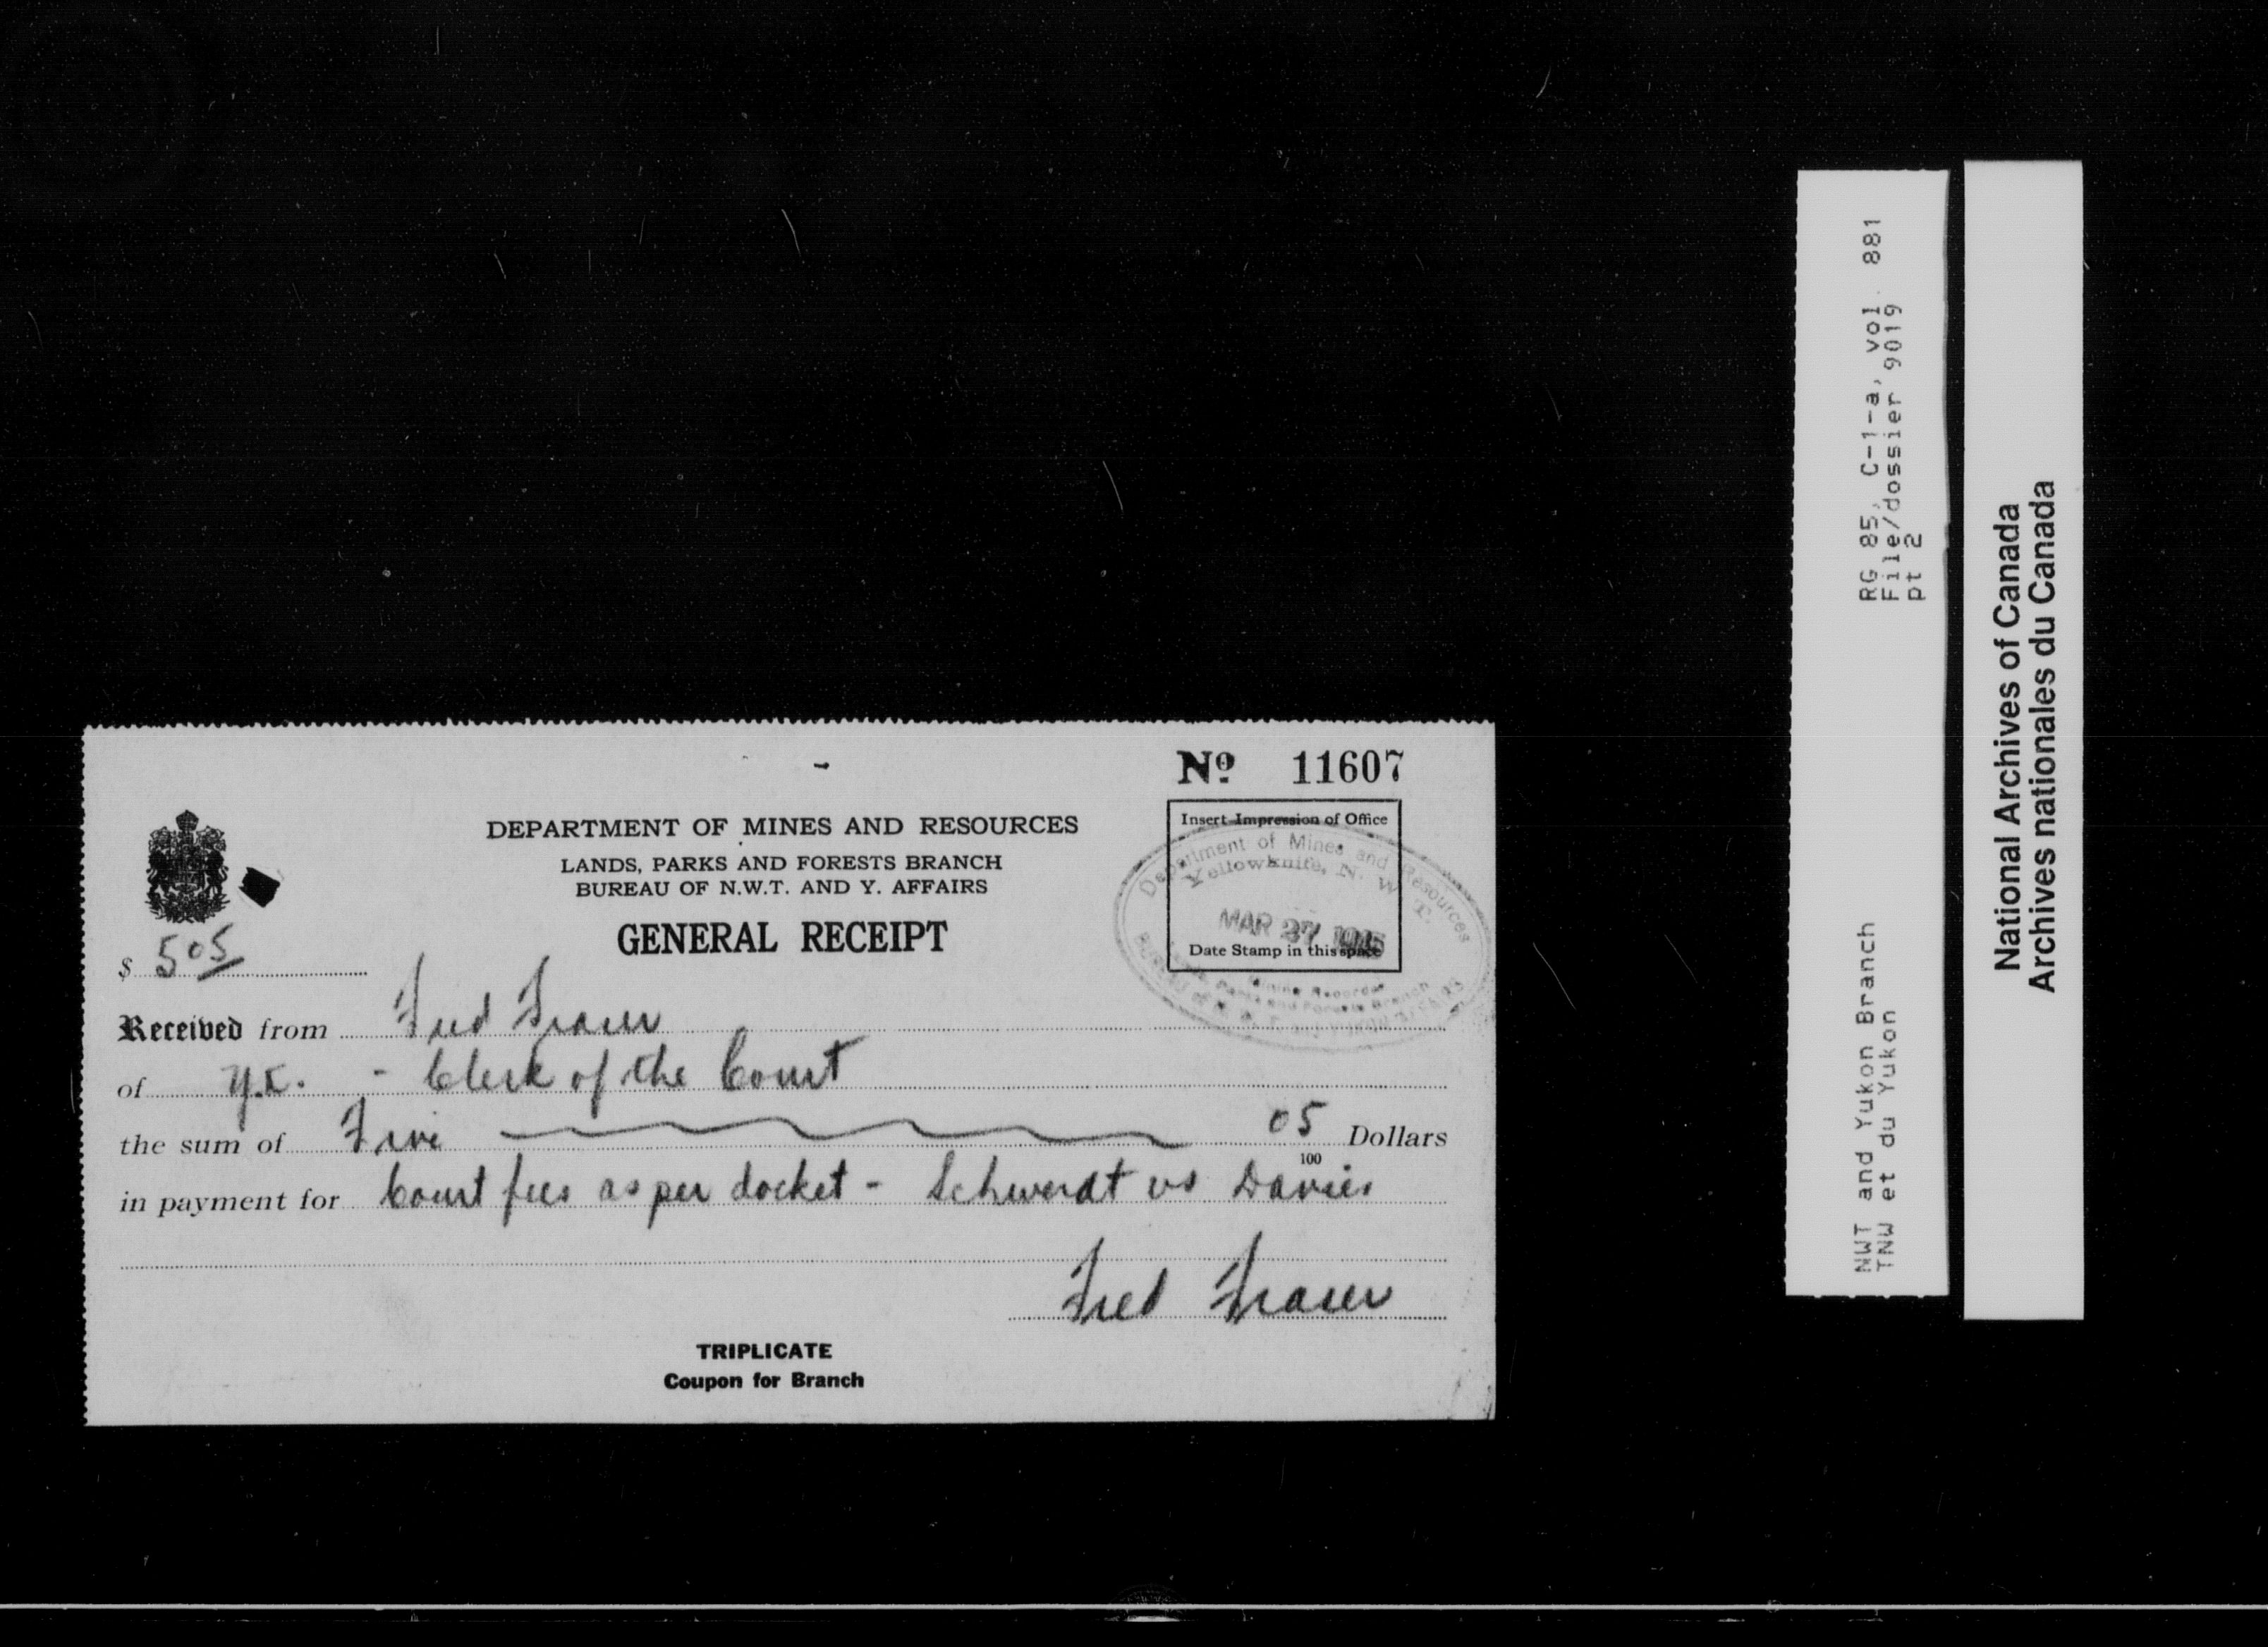 Nº 11607
DEPARTMENT OF MINES AND RESOURCES
LANDS, PARKS AND FORESTS BRANCH
BUREAU OF N.W.T. AND Y. AFFAIRS
GENERAL RECEIPT
Insert Impression of Office
Date Stamp in this space
Department of Mines and Resources
Yellowknife, N. W. T.
MAR 27 1945
Mining Recorder
$ 5 05
Received from Fred Fraser
of Y.K. - Clerk of the Court
the sum of Five 05/100 Dollars
in payment for Court fees as per docket - Schwerdt vs Davies
Fred Fraser
TRIPLICATE
Coupon for Branch
RG 85, C-1-a, vol. 881
File/dossier 9019
pt 2
NWT and Yukon Branch
TNW et du Yukon
National Archives of Canada
Archives nationales du Canada